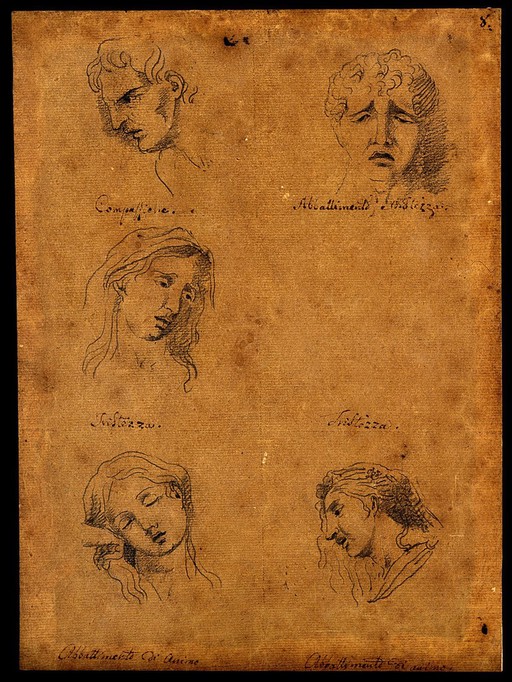 8.
Compassione.
Abbattimento, e Tristezza.
Tristezza.
Tristezza.
Abbattimento di Animo
Abbattimento di animo